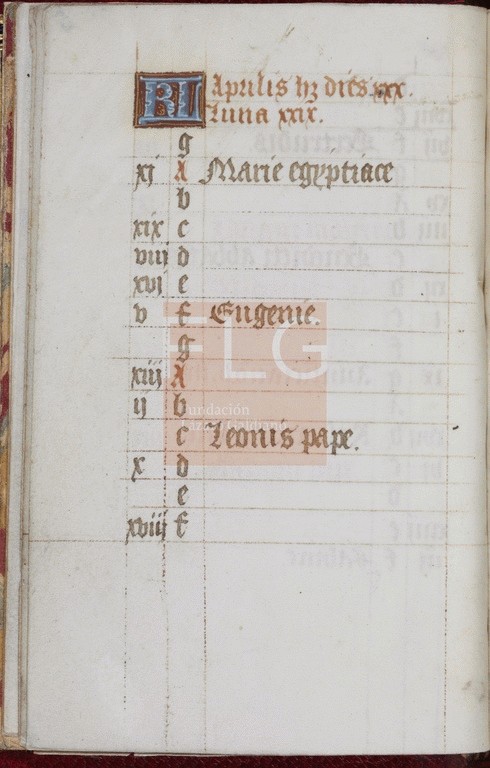 KL Aprilis hꝫ dies xxx.
Luna xxix.
g
xj A Marie egyptiace
b
xix c
viij d
xvj e
v f Eugenie.
g
xiij A
ij b
c Leonis pape.
x d
e
xviij f
FLG
Fundación
Lázaro Galdiano